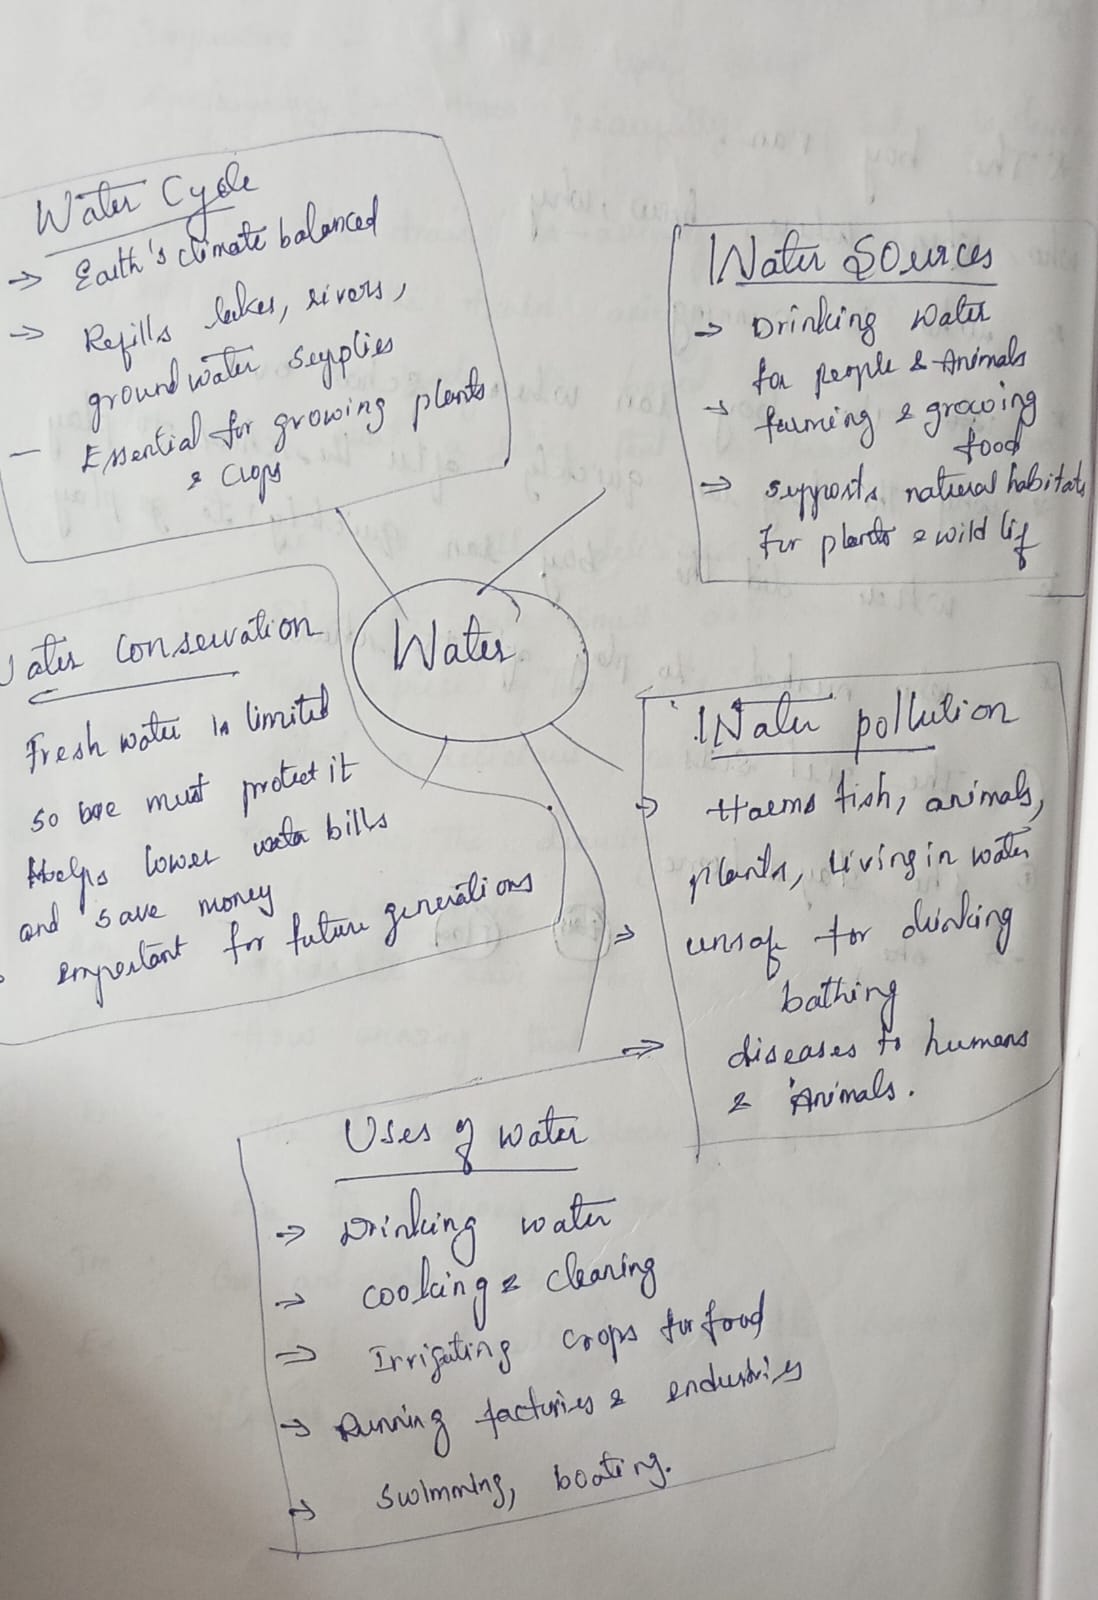 Water Cycle
→ Earth's climate balanced
→ Refills lakes, rivers,
ground water supplies
— Essential for growing plants
& Crops
Water Sources
→ Drinking water
for people & Animals
→ farming & growing
food
⇒ supports natural habitats
for plants & wild lif
Water
ater Conservation
Fresh water is limited
so we must protect it
Helps lower water bills
and save money
important for future generations
Water pollution
→ Harms fish, animals,
plants, living in water
⇒ unsafe for drinking
bathing
⇒ diseases to humans
& Animals.
Uses of water
→ Drinking water
→ cooking & cleaning
⇒ Irrigating crops for food
→ Running factories & endustries
→ swimming, boating.